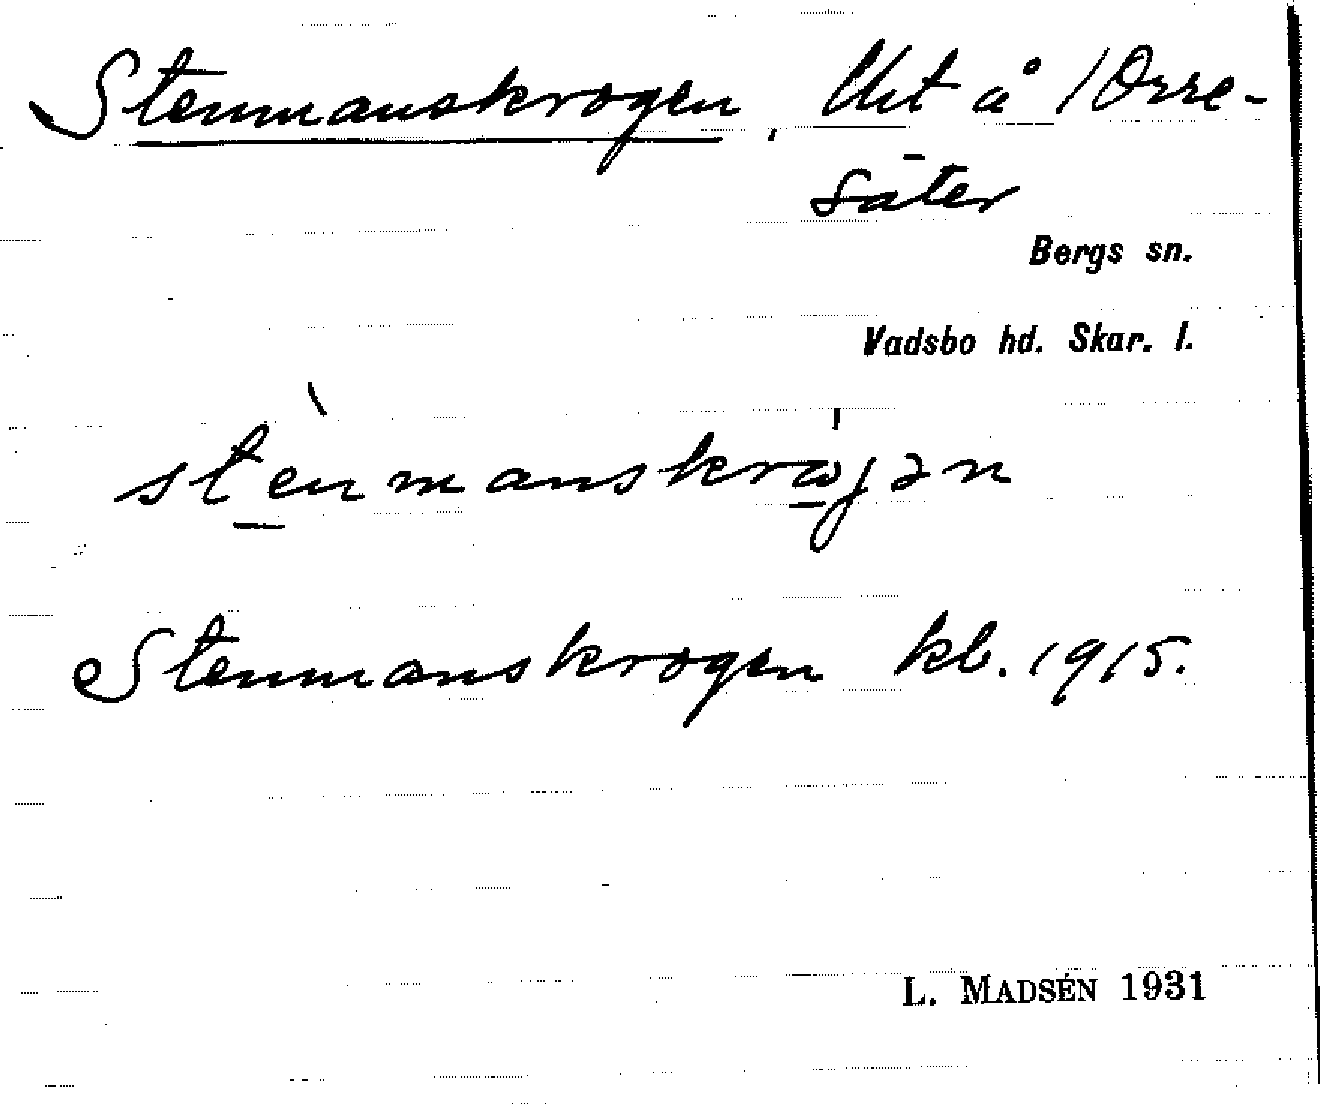 Stenmanskrogen, Utt å 1 Orre-
säter
Bergs sn.
Vadsbo hd. Skar. l.
stènmanskrωjən
Stenmanskrogen kb. 1915.
L. MADSÉN 1931